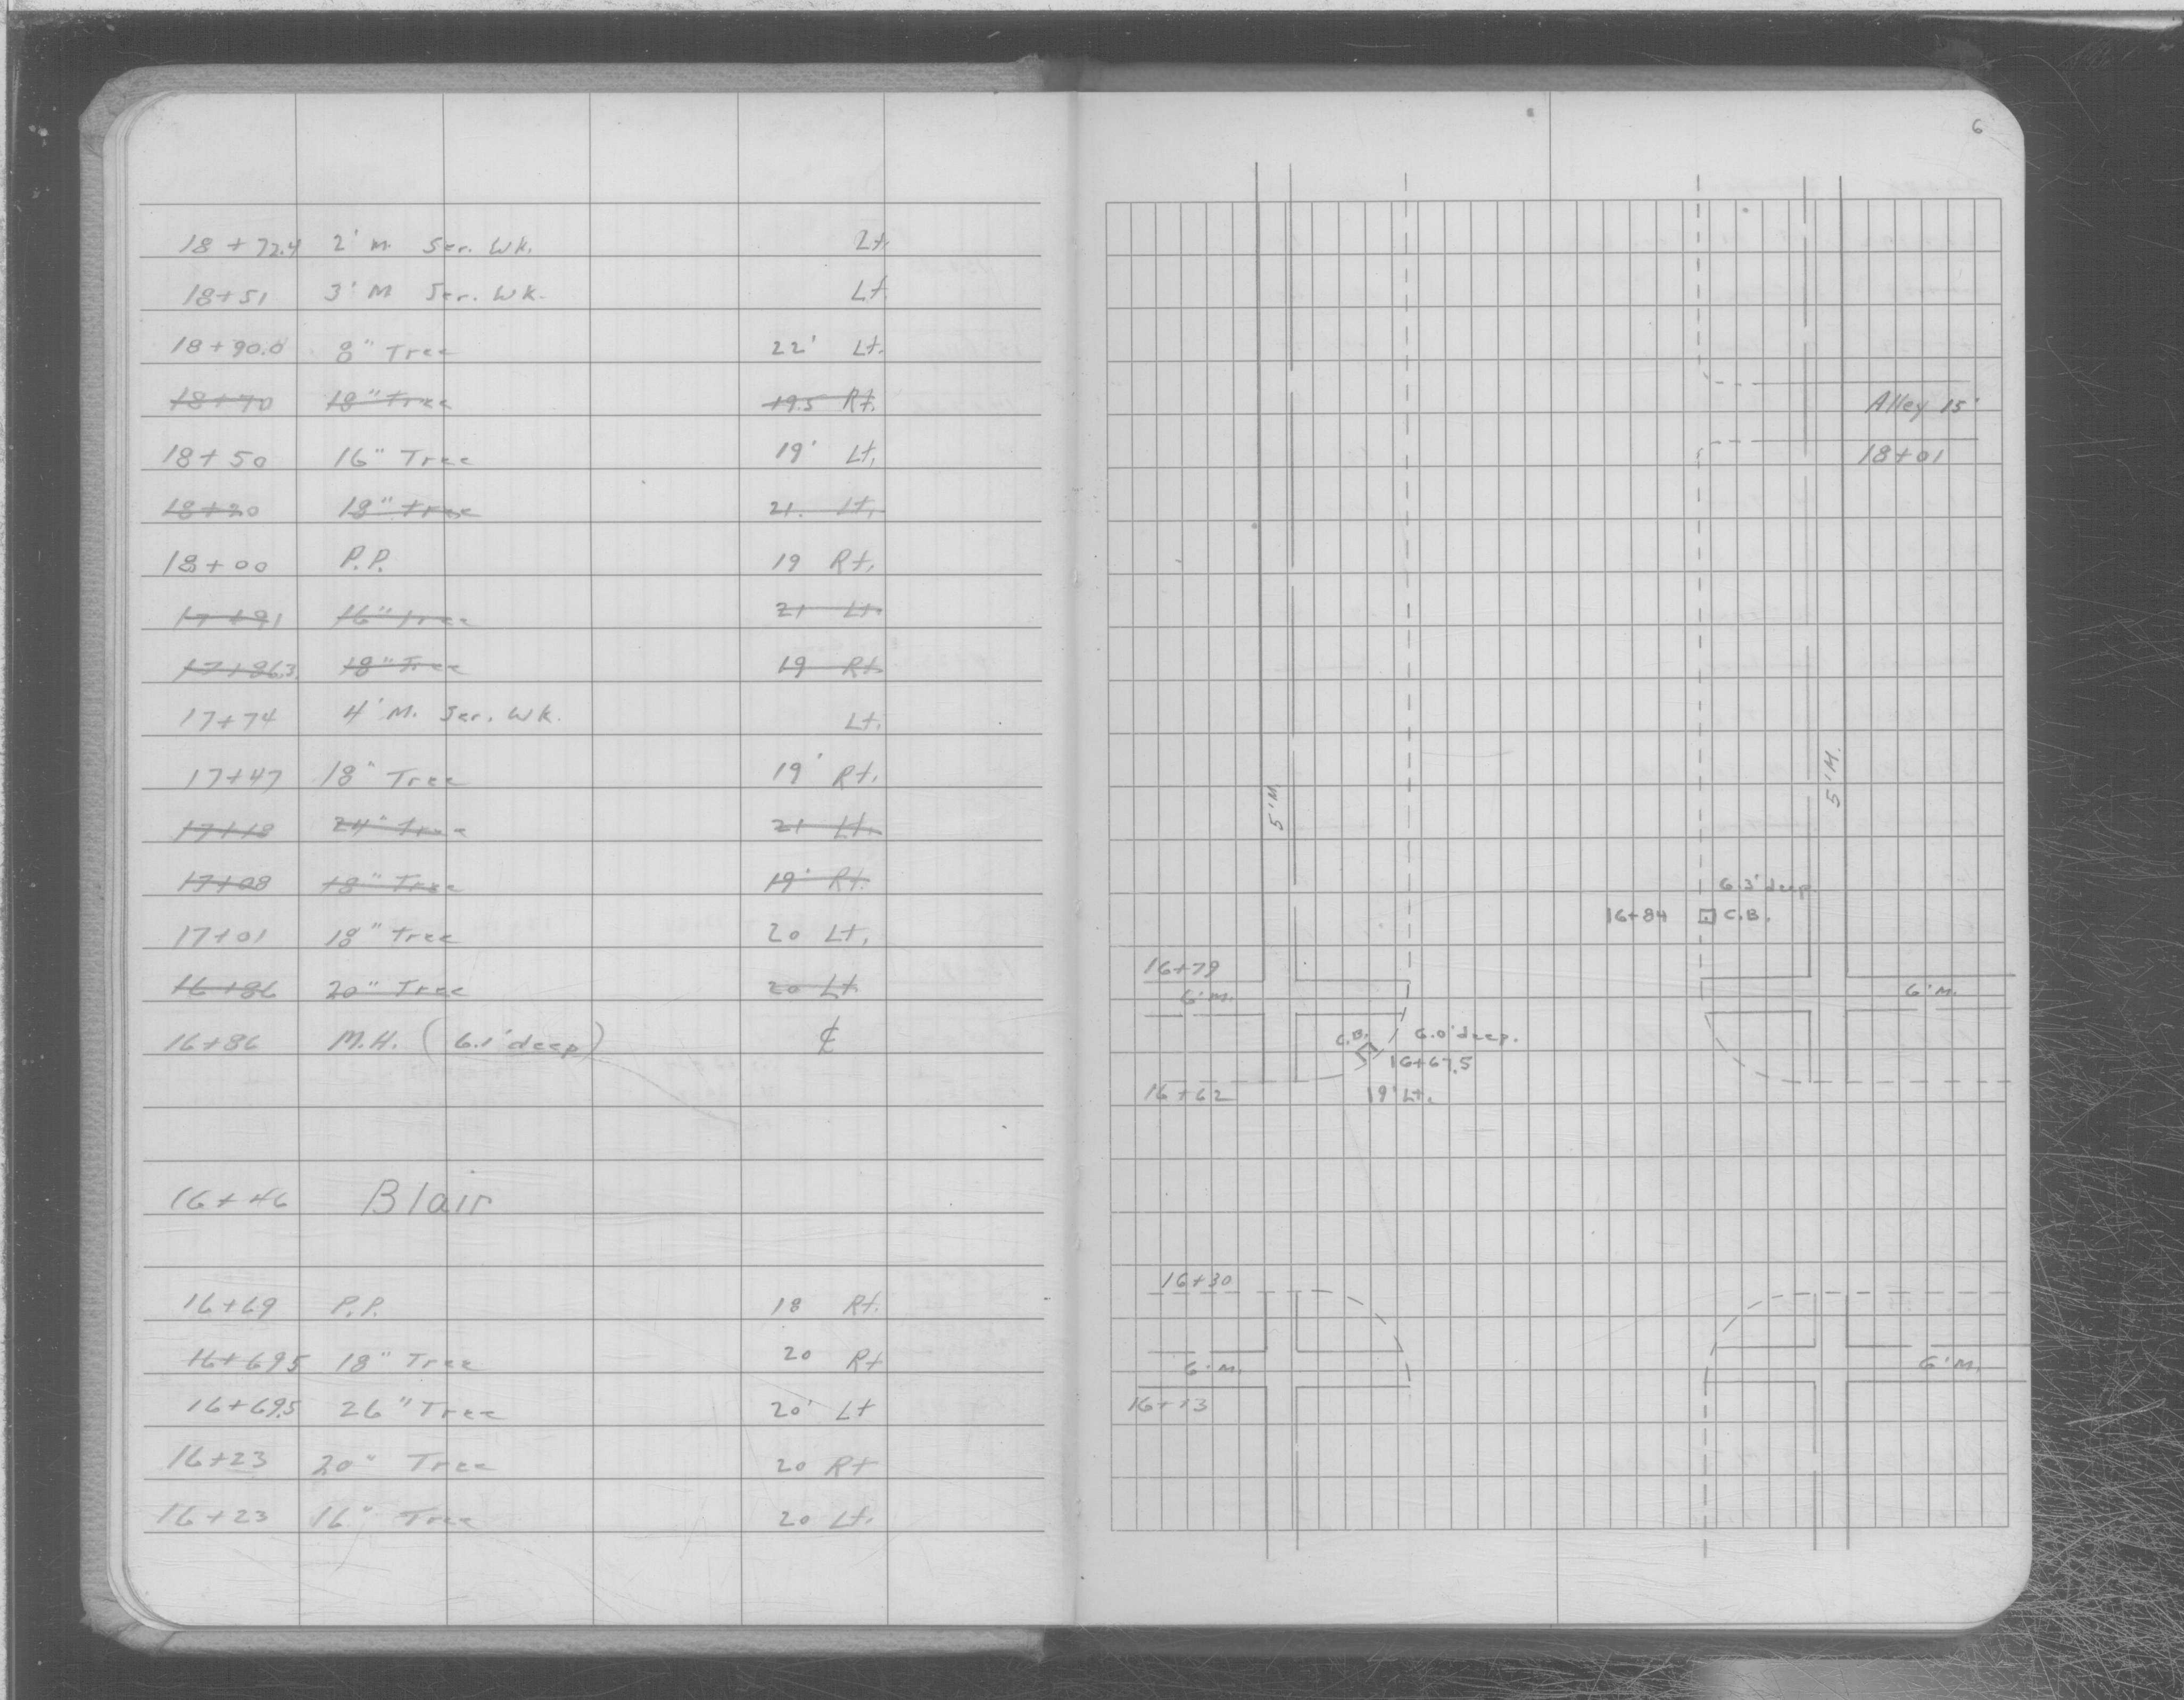 18 + 72.4 2' M. Ser. Wk. Lt.
18+51 3' M Ser. Wk. Lt.
18+90.0 8" Tree 22' Lt.
18+70 18" Tree 19.5 Rt.
18+50 16" Tree 19' Lt.
18+20 18" tree 21. Lt.
18+00 P.P. 19 Rt.
17+91 16" Tree 21 Lt.
17+86.3 18" Tree 19 Rt.
17+74 4' M. Ser. Wk. Lt.
17+47 18" Tree 19' Rt.
17+18 24" Tree 21 Lt.
17+08 18" Tree 19' Rt.
17+01 18" tree 20 Lt.
16+86 20" Tree 20 Lt.
16+86 M.H. (6.1' deep) ₵
16+46 Blair
16+69 P.P. 18 Rt.
16+695 18" Tree 20 Rt
16+69.5 26" Tree 20' Lt
16+23 20" Tree 20 Rt
16+23 16" Tree 20 Lt.
6
Alley 15'
18+01
5' M.
5' M.
6.2' deep
16+84 C.B.
16+79
6' M.
6' M.
C.B. 6.0' deep.
16+67.5
16+62 19' Lt.
16+30
6' M.
6' M.
16+13